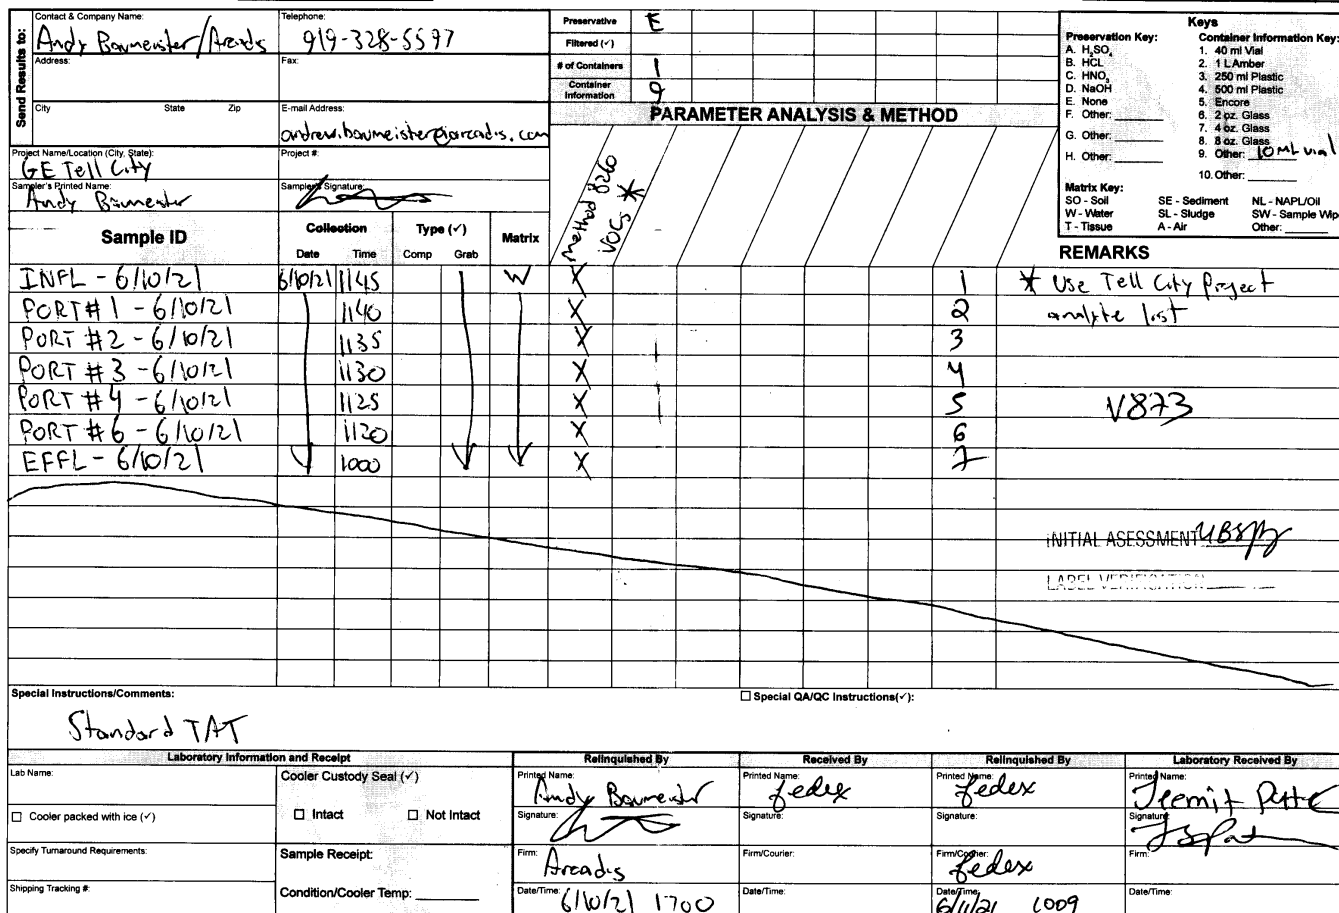 Send Results to:
Contact & Company Name:
Andy Baumeister/Arcadis
Telephone:
919-328-5597
Address:
Fax:
City State Zip
E-mail Address:
andrew.baumeister@arcadis.com
Project Name/Location (City, State):
GE Tell City
Project #:
Sampler's Printed Name:
Andy Baumeister
Sampler's Signature:
Preservative E
Filtered (✓)
# of Containers 1
Container Information 9
PARAMETER ANALYSIS & METHOD
Method 8260
VOCs *
Keys
Preservation Key:
A. H2SO4
B. HCL
C. HNO3
D. NaOH
E. None
F. Other:
G. Other:
H. Other:
Container Information Key:
1. 40 ml Vial
2. 1 L Amber
3. 250 ml Plastic
4. 500 ml Plastic
5. Encore
6. 2 oz. Glass
7. 4 oz. Glass
8. 8 oz. Glass
9. Other: 10 mL vial
10. Other:
Matrix Key:
SO - Soil SE - Sediment NL - NAPL/Oil
W - Water SL - Sludge SW - Sample Wip
T - Tissue A - Air Other:
Sample ID Collection Type (✓) Matrix REMARKS
Date Time Comp Grab
INFL - 6/10/21 6/10/21 1145 W X 1 * Use Tell City Project
PORT # 1 - 6/10/21 1140 X 2 analyte list
PORT # 2 - 6/10/21 1135 X 3
PORT # 3 - 6/10/21 1130 X 4
PORT # 4 - 6/10/21 1125 X 5 V873
PORT # 6 - 6/10/21 1120 X 6
EFFL - 6/10/21 1000 X 7
INITIAL ASESSMENT
LABEL VERIFICATION
Special Instructions/Comments:
Special QA/QC Instructions(✓):
Standard TAT
Laboratory Information and Receipt
Lab Name:
Cooler Custody Seal (✓)
Cooler packed with ice (✓)
Intact Not Intact
Specify Turnaround Requirements:
Sample Receipt:
Shipping Tracking #:
Condition/Cooler Temp:
Relinquished By
Printed Name:
Andy Baumeister
Signature:
Firm:
Arcadis
Date/Time:
6/10/21 1700
Received By
Printed Name:
fedex
Signature:
Firm/Courier:
Date/Time:
Relinquished By
Printed Name:
fedex
Signature:
Firm/Courier:
fedex
Date/Time:
6/11/21 1009
Laboratory Received By
Printed Name:
Signature:
Firm:
Date/Time: